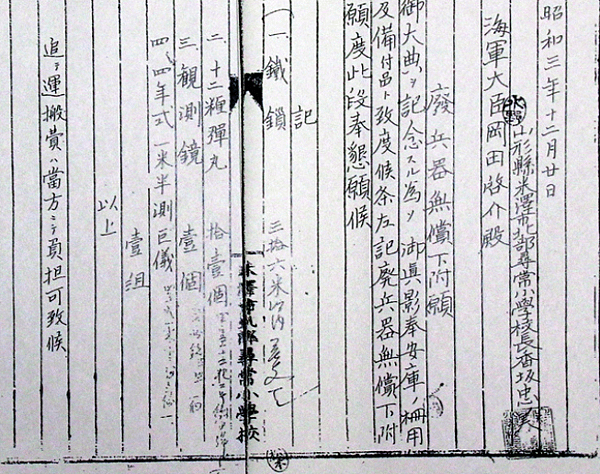 昭和三年十二月廿日
山形縣米澤市北部尋常小學校長香坂忠
海軍大臣岡田啓介殿
廢兵器無償下附願
御大典ヲ記念スル為メ御眞影奉安庫ノ柵用
及備付品ト致度候条左記廢兵器無償下附
願度此段奉懇願候
記
一、鐵鎖 三拾六米
米澤市北部尋常小學校
二、十二糎彈丸 拾壹個
三、観測鏡 壹個
四、四年式一米半測巨儀 壹組
以上
追テ運搬賞ハ當方ニテ負担可致候